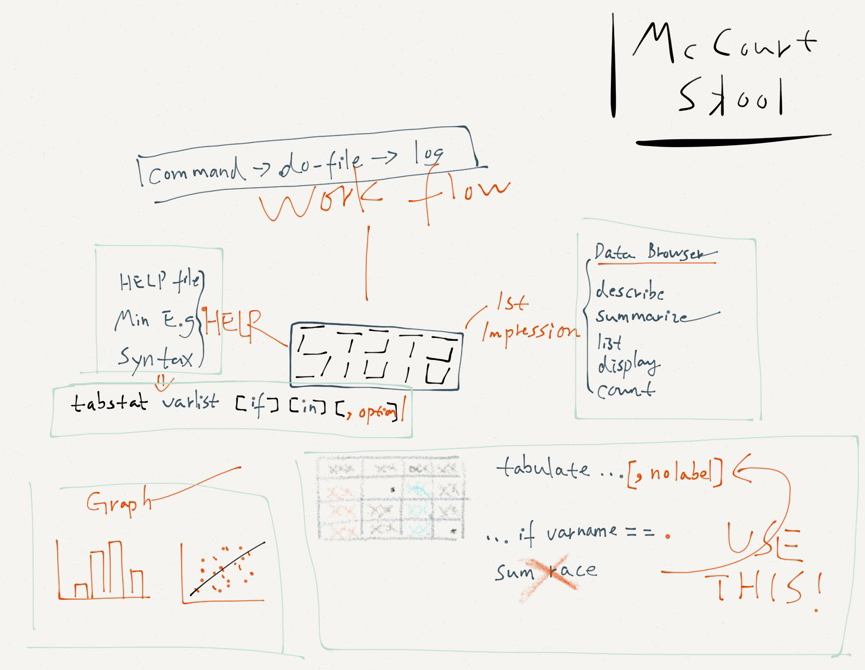 McCourt
Skool
command → do-file → log
Work flow
HELP file
Min E.g
Syntax
HELP
1st
Impression
Data Browser
describe
summarize
list
display
count
tabstat varlist [if] [in] [, option]
Graph
tabulate ... [, nolabel]
... if varname == .
sum race
USE
THIS!